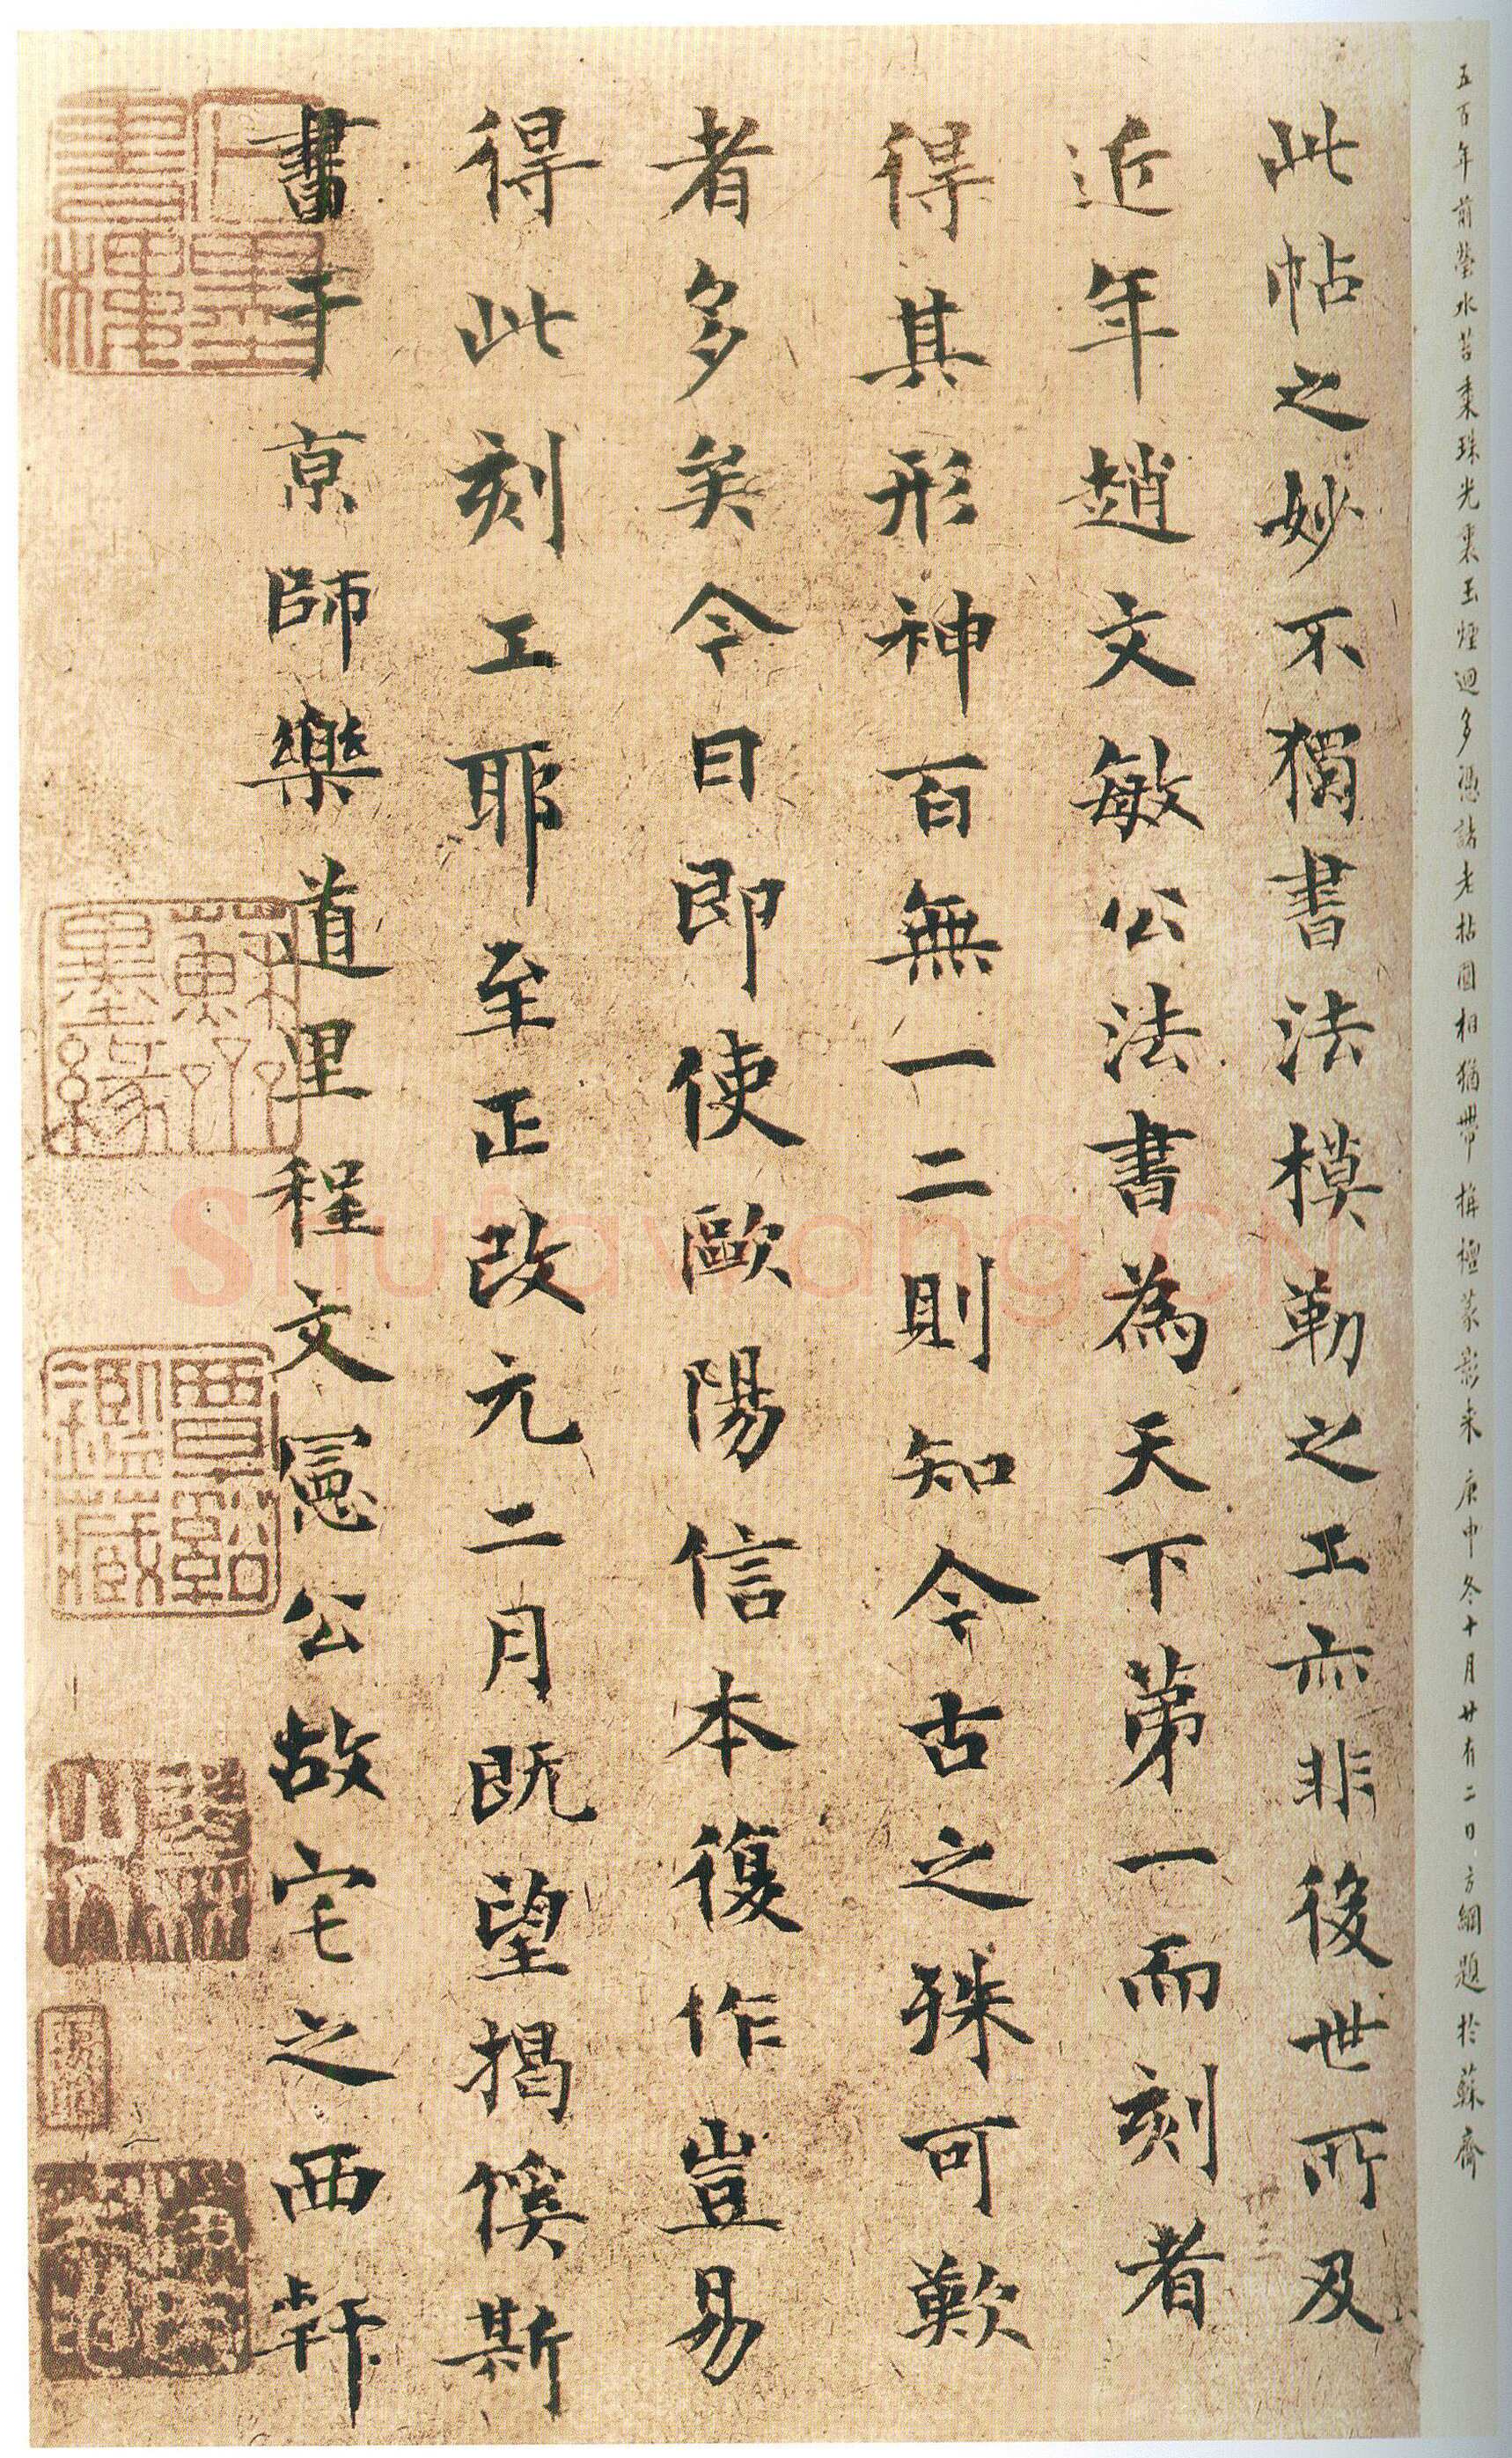 五百年前螢水苔棗珠光裏玉煙迴多憑詁老拈圓相猶帶栴檀篆影来 庚申冬十月廿有二日方綱題於蘇齋
此帖之妙不獨書法模勒之工亦非後世所及
近年趙文敏公法書為天下第一而刻者
得其形神百無一二則知今古之殊可歎
者多矣今日即使歐陽信本復作豈易
得此刻工耶至正改元二月既望揭傒斯
書于京師樂道里程文憲公故宅之西軒
蘇齋墨緣
賈似道鑑藏
shufawang.cn